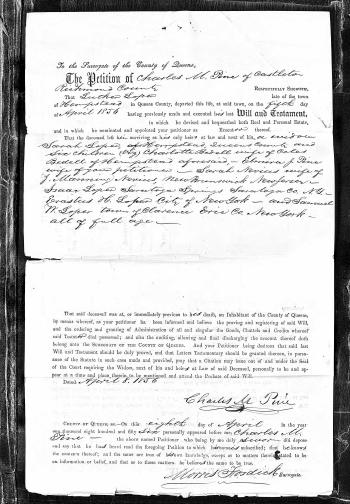 To the Surrogate of the County of Queens,
The Petition of Charles M. Pine of Castleton
Richmond County RESPECTFULLY SHOWETH,
That Luther Loper late of the town
of Hempstead in Queens County, departed this life, at said town, on the fifth day
of April 1856 having previously made and executed his last Will and Testament,
in which he devised and bequeathed both Real and Personal Estate,
and in which he nominated and appointed your petitioner as Executor thereof.
That the deceased left him surviving as his only heirs at law and next of kin, a widow
Sarah Loper of Hempstead Queens County and
five children Viz Charlotte Bedell wife of
Bedell of Hempstead aforesaid - Pine
wife of your petitioner - Sarah Nevius wife of
J. Manning Nevius New Brunswick New Jersey -
Isaac Loper Saratoga Springs Saratoga Co. N.Y.
Erastus H. Loper City of New York - and Samuel
W. Loper town of Clarence Erie Co. New York -
all of full age -
That said deceased was at, or immediately previous to his death, an Inhabitant of the County of Queens,
by means whereof, as your petitioner has been informed and believes the proving and registering of said Will,
and the ordering and granting of Administration of all and singular the Goods, Chattels and Credits whereof
said Testator died possessed; and also the auditing, allowing and final discharging the account thereof doth
belong unto the SURROGATE OF THE COUNTY OF QUEENS. And your Petitioner being desirous that said last
Will and Testament should be duly proved, and that Letters Testamentary should be granted thereon, in pursu-
ance of the Statute in such case made and provided, pray that a Citation may issue out of and under the Seal
of the Court of this Surrogate, to the widow, next of kin and heirs at Law of said Deceased, personally to be and ap-
pear at a time and place therein to be mentioned and attend the Probate of said Will.
Dated April 8. 1856
Charles M Pine
COUNTY OF QUEENS, ss.-On this eighth day of April in the year
one thousand eight hundred and fifty six personally appeared before me, Charles M.
Pine - the above named Petitioner who being by me duly sworn did depose
and say that he had heard read the foregoing Petition to which he subscribed; that he knows
the contents thereof; and the same are true of his own knowledge, except as to matters therein stated to be
on information or belief, and that as to those matters he believes the same to be true.
Morris Fosdick Surrogate.